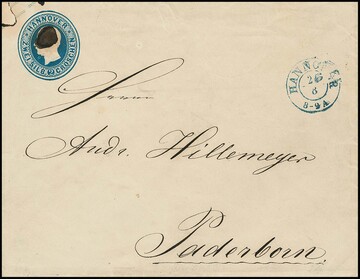 HANNOVER
ZWEI SILB. GROSCHEN
2
HANNOVER
26
6
8-9 A
Herrn
Andr. Hillemeyer
Paderborn.